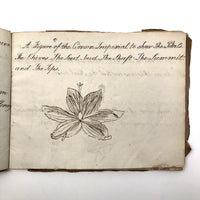 A Figure of the Crown Imperial to shew the Petals
The Chives The Seed bud The Shaft The Summit
and The Tips.